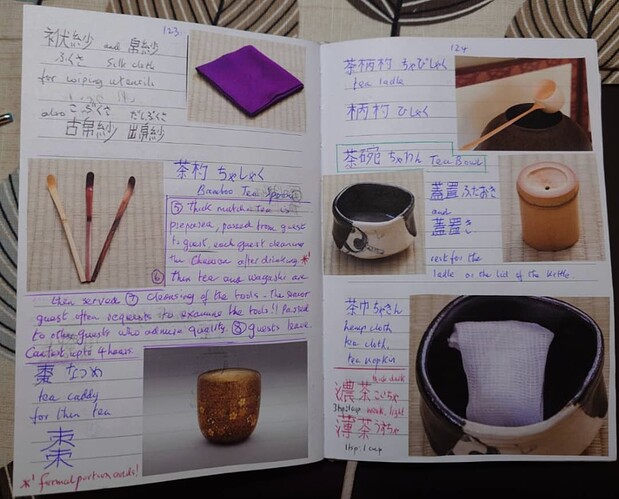 123
袱紗 and 帛紗
ふくさ silk cloth
for wiping utensils
also こぶくさ だしぶくさ
古帛紗 出帛紗
茶杓 ちゃしゃく
Bamboo Tea Spoon
⑤ thick matcha tea is
prepared, passed from guest
to guest, each guest cleaning
the Chawan after drinking. *1
⑥ thin tea and wagashi are
then served ⑦ cleansing of the tools - The senior
guest often requests to examine the tools!! Passed
to other guests who admire quality. ⑧ guests leave.
Can last up to 4 hours.
棗 なつめ
tea caddy
for thin tea
棗
*1 formal portion ends!
124
茶柄杓 ちゃびしゃく
tea ladle
柄杓 ひしゃく
茶碗 ちゃわん Tea Bowl
蓋置 ふたおき
and
蓋置き
rest for the
ladle or the lid of the kettle.
茶巾 ちゃきん
hemp cloth
tea cloth,
tea napkin
thick dark
濃茶 こいちゃ
weak, light
薄茶 うすちゃ
1tsp: 1 cup